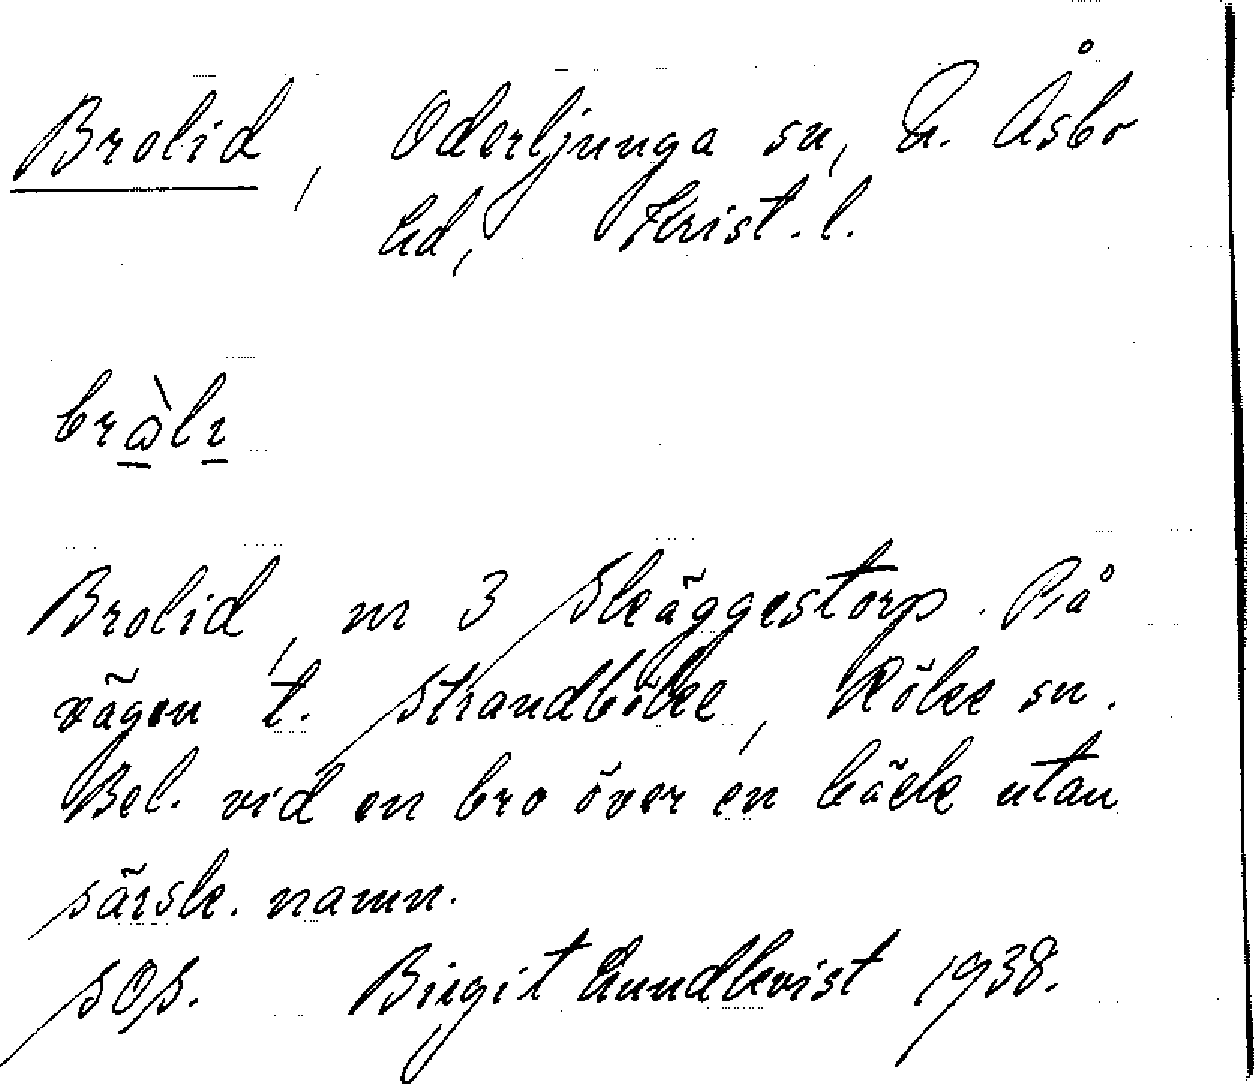 Brolid, Oderljunga sn, N. Åsbo
hd, Krist. l.
bràlı
Brolid, nr 3 Skäggestorp. På
vägen t. Strandböke, Röke sn.
Bel. vid en bro över en bäck utan
särsk. namn.
SOS. Birgit Lundkvist 1938.